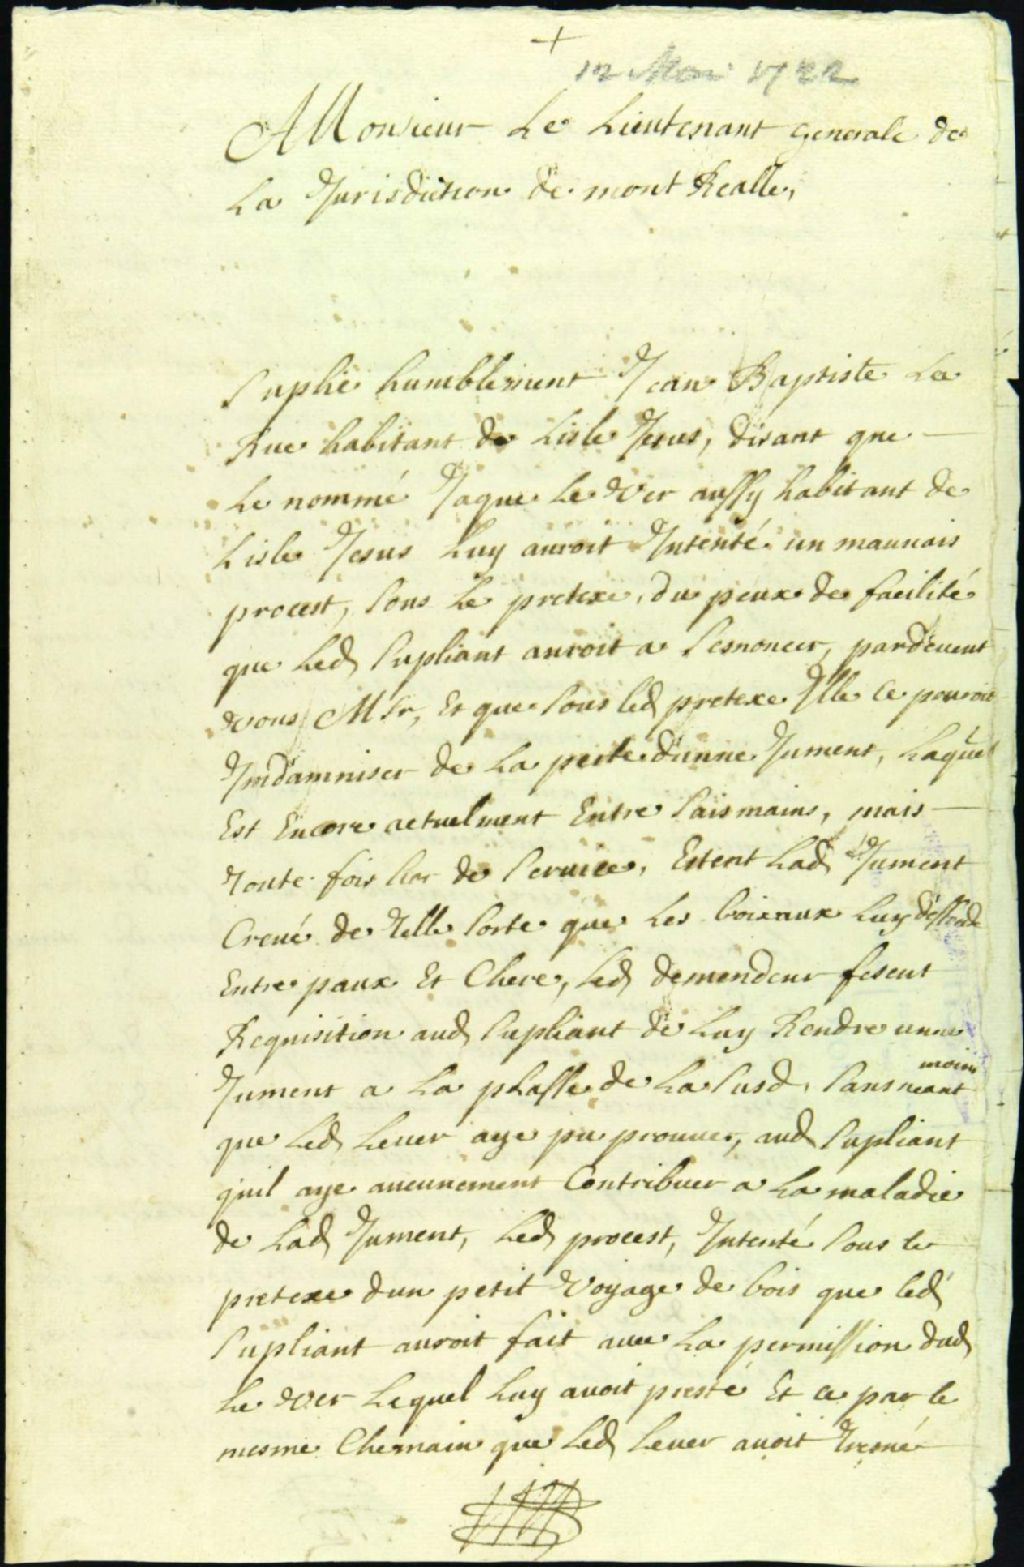 +
12 Mai 1722
A Monsieur Le Lieutenant generale de
La Jurisdiction de mont Realle,
Suplie humblement Jean Baptiste La
Rue habitant de Lisle Jesus, disant que
Le nommé Jaque Le Ver aussy habitant de
Lisle Jesus Luy auroit Intenté un mauuais
procest, sous le pretexe, du peux de facilité
que Led Supliant auroit a sesnoncer, pardeuent
vous Msr, Et que sous led pretexe Ille ce pouroit
Indamniser de La perte dunne Jument, Laquel
Est Encore actuelment Entre sais mains, mais
toute fois hor de seruice, Estent Lad Jument
Creué de telle sorte que Les boieaux Luy
Entre paux Et Chere, Led demendeur feseut
Requisition aud Supliant de Luy Rendre unne
Jument a La plasse de La susd, sans neant
moins
que Led Leuer aye pu prouuer, aud Supliant
quil aye aucunement Contribuer a La maladie
de Lad Jument, Led procest, Intenté sous le
pretexe dun petit voyage de bois que led
Supliant auroit fait auec La permission dud
Le Ver Lequel Luy auoit presté Et ce par le
mesme Chemain que Led Leuer auoit tresné